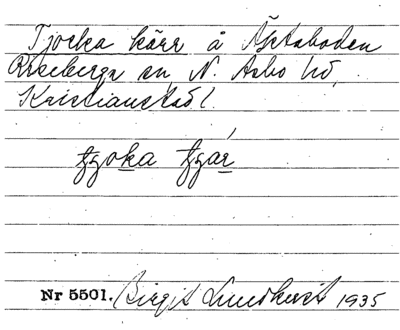 Tjocka kärr å Äktaboden
Riseberga sn, N. Åsbo hd,
Kristianstad l.
Nr 5501. Birgit Lundkvist 1935